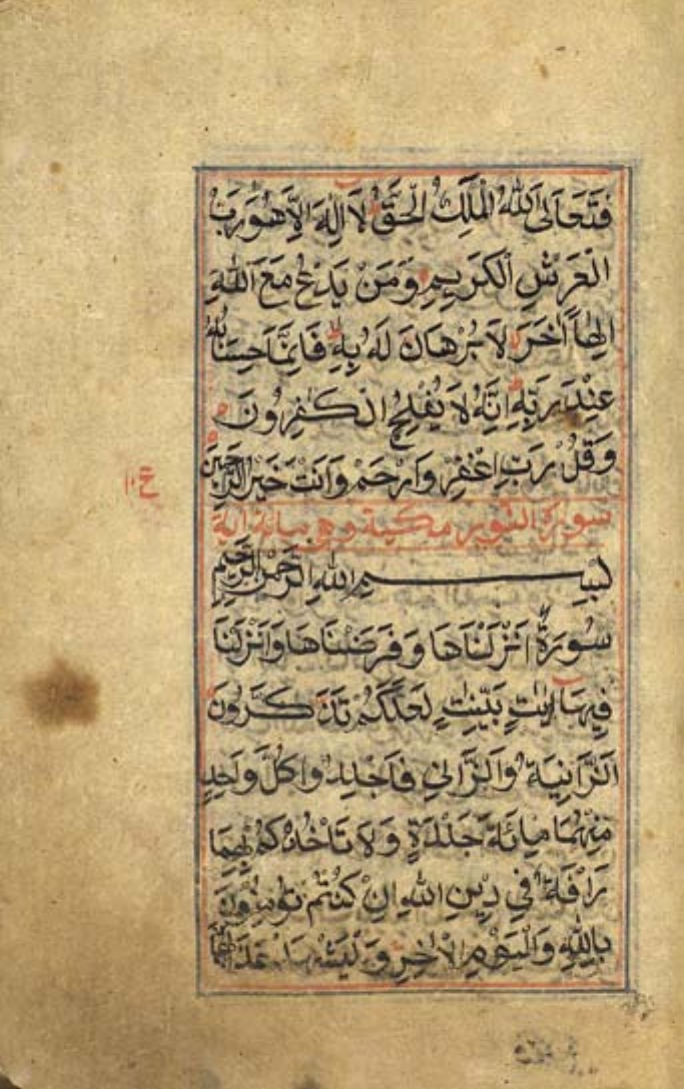 فَتَعَالَى اللهُ الْمَلِكُ الْحَقُّ لَا اِلٰهَ اِلَّا هُوَ رَبُّ
الْعَرْشِ الْكَرِيمِ وَمَنْ يَدْعُ مَعَ اللهِ
اِلٰهًا اٰخَرَ لَا بُرْهَانَ لَهُ بِهِ فَاِنَّمَا حِسَابُهُ
عِنْدَ رَبِّهِ اِنَّهُ لَا يُفْلِحُ الْكٰفِرُونَ
وَقُلْ رَبِّ اغْفِرْ وَارْحَمْ وَاَنْتَ خَيْرُ الرّٰحِمِينَ
ع ١٠
سورة النور مكية وهى مائة اية
بِسْمِ اللهِ الرَّحْمٰنِ الرَّحِيمِ
سُورَةٌ اَنْزَلْنَاهَا وَفَرَضْنَاهَا وَاَنْزَلْنَا
فِيهَا اٰيٰتٍ بَيِّنٰتٍ لَعَلَّكُمْ تَذَكَّرُونَ
اَلزَّانِيَةُ وَالزَّانِي فَاجْلِدُوا كُلَّ وَاحِدٍ
مِنْهُمَا مِائَةَ جَلْدَةٍ وَلَا تَأْخُذْكُمْ بِهِمَا
رَأْفَةٌ فِي دِينِ اللهِ اِنْ كُنْتُمْ تُؤْمِنُونَ
بِاللهِ وَالْيَوْمِ الْاٰخِرِ وَلْيَشْهَدْ عَذَابَهُمَا